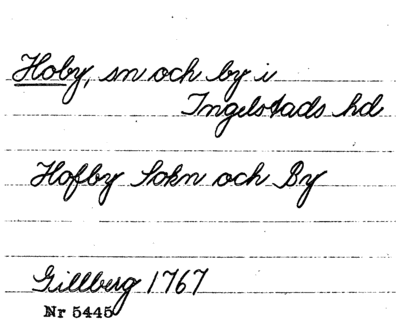 Hoby, sn och by i
Ingelstads hd
Hofby Sokn och By
Gillberg 1767
Nr 5445